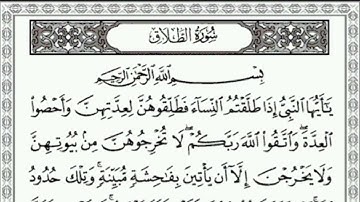 سُورَةُ الطَّلَاقِ
بِسْمِ اللَّهِ الرَّحْمَٰنِ الرَّحِيمِ
يَٰٓأَيُّهَا ٱلنَّبِيُّ إِذَا طَلَّقْتُمُ ٱلنِّسَآءَ فَطَلِّقُوهُنَّ لِعِدَّتِهِنَّ وَأَحْصُوا۟
ٱلْعِدَّةَ ۖ وَٱتَّقُوا۟ ٱللَّهَ رَبَّكُمْ ۖ لَا تُخْرِجُوهُنَّ مِنۢ بُيُوتِهِنَّ
وَلَا يَخْرُجْنَ إِلَّآ أَن يَأْتِينَ بِفَٰحِشَةٍ مُّبَيِّنَةٍ ۚ وَتِلْكَ حُدُودُ